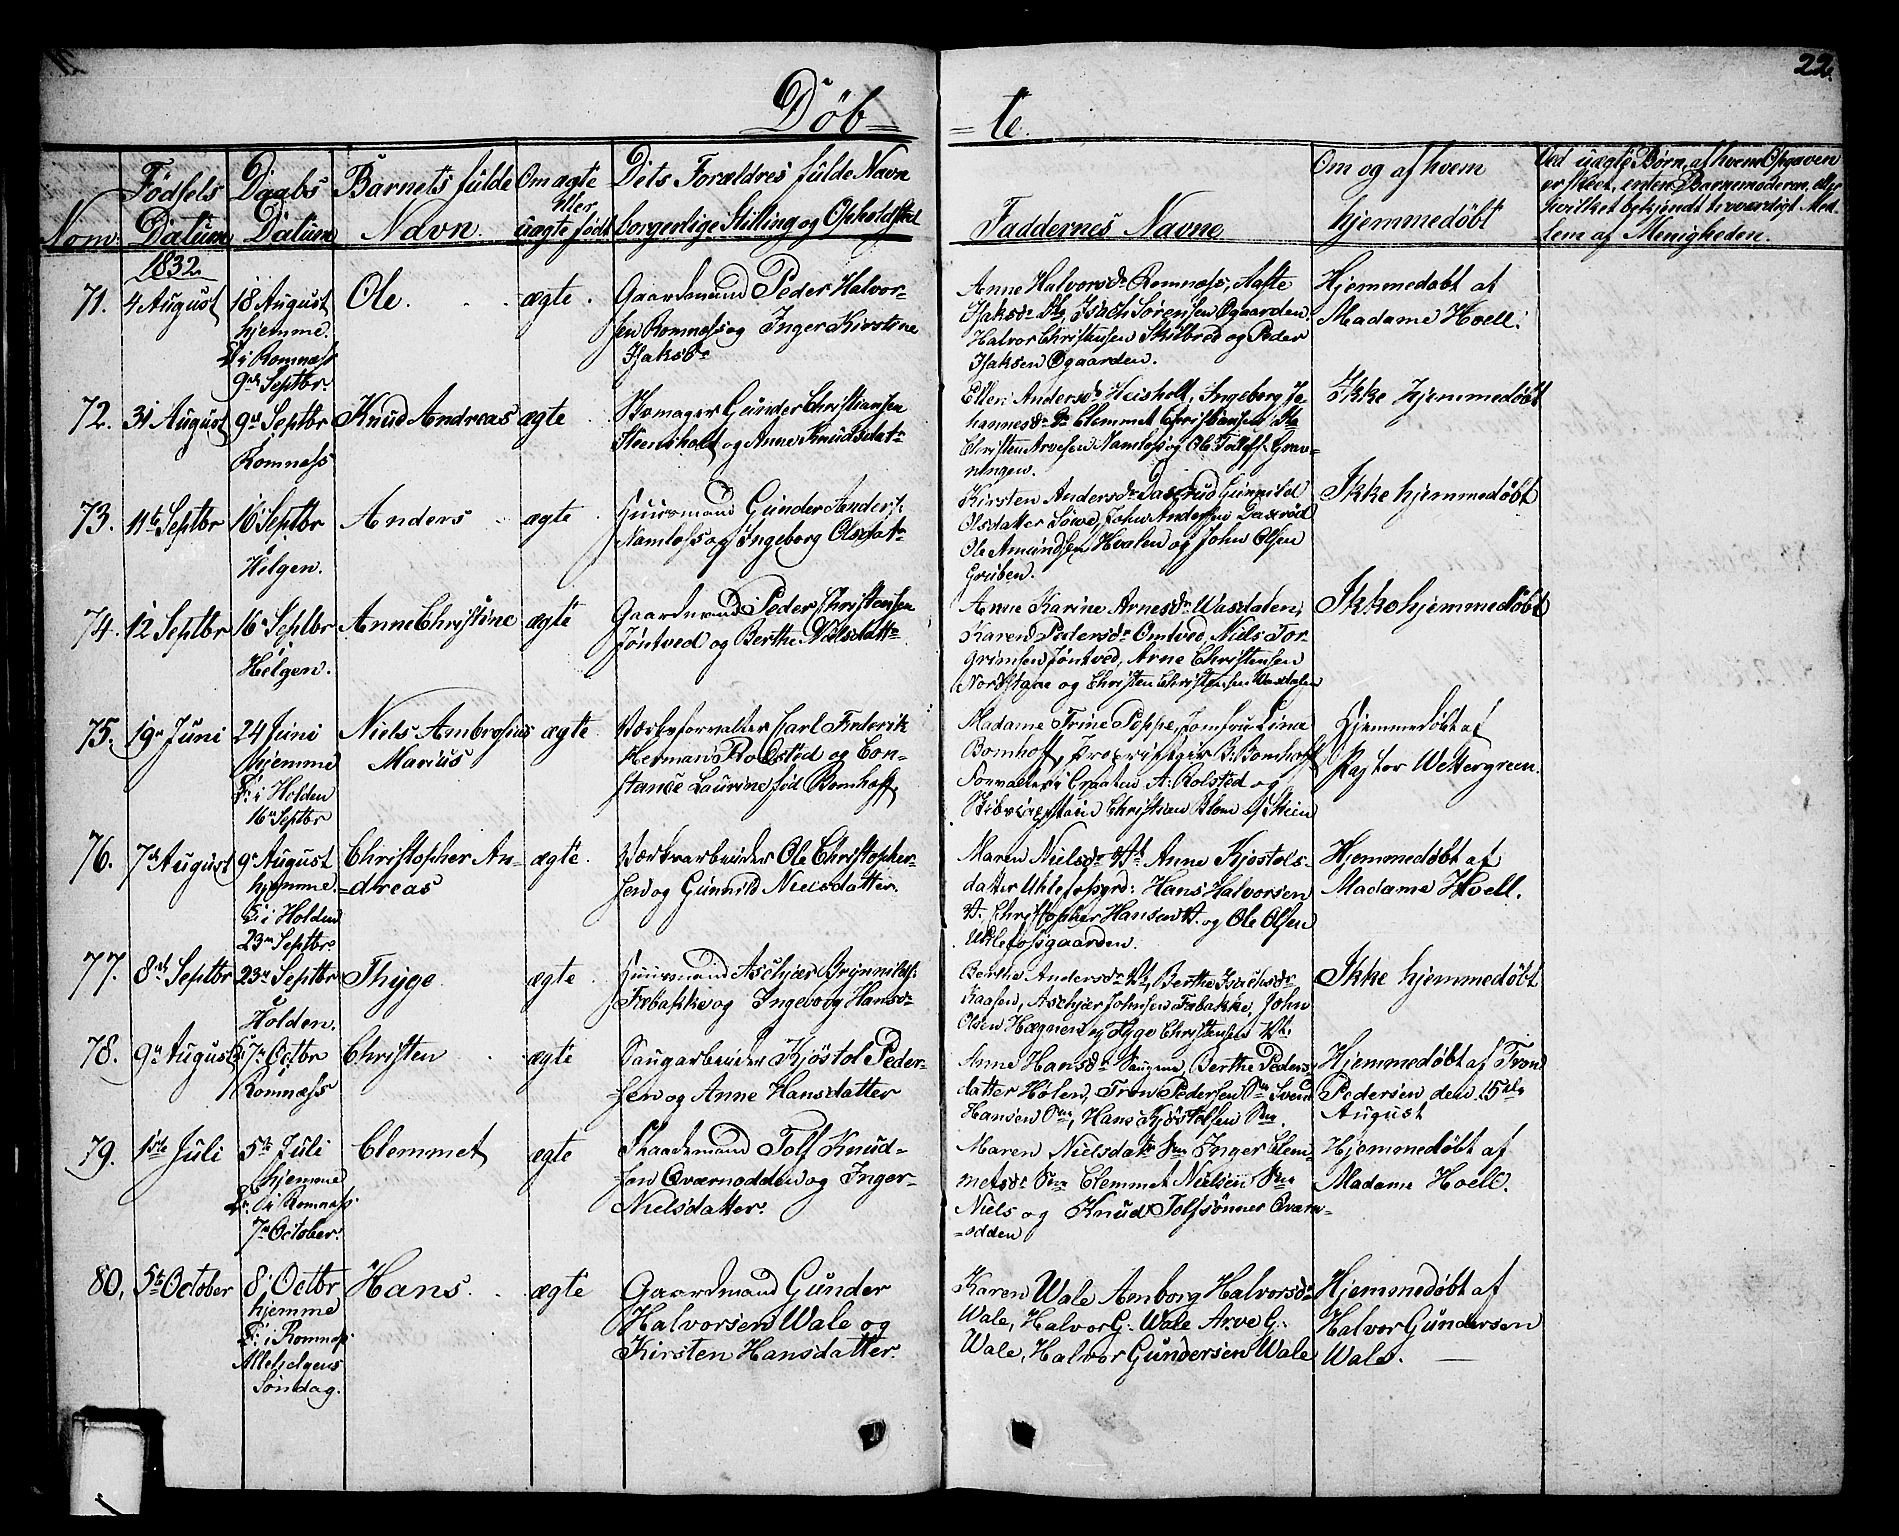 22.
Døb= =te.
Nom.
Fødsels Datum
Daabs Datum
Barnets fulde Navn
Om ægte eller uægte født
Dets Forældres fulde Navn borgerlige Stilling og Opholdsted
Faddernes Navne
Om og af hvem hjemmedøbt
Ved uægte Børn, af hvem Opgaven
er skeet, enten Barnemoderen, eller
hvilket bekjendt troværdigt Med-
lem af Menigheden.
1832.
71. 4 August
18 August
hjemme.
i Romnæss
9de Septbr.
Ole.
ægte.
Gaardmand Peder Halvor-
sen Romnæss og Inger Kirstine
Isaksdr
Anne Halvorsdr Romnæss, Aaste
Isaksdr Isach Sørensen Øgaarden.
Halvor Christensen Skilbred og Peder
Isaksen Øgaarden.
Hjemmedøbt af
Madame Hoell.
72. 31 August
9de Septbr
Romnæss
Knud Andreas
ægte.
Skomager Gunder Christiansen
Steensholt og Anne Knudsdatr
Ellen Andersdr Heisholt, Ingeborg Jo-
hannesdr Clemmet Christiansen
Christen Arvesen Namløs og Ole Tollefs. Grav-
ningen.
Ikke hjemmedøbt
73. 11te Septbr
16 Septbr
Helgen.
Anders
ægte.
Huusmand Gunder Anders.
Namløss og Ingeborg Olsdatr
Kirsten Andersdr Daserud Gunnild
Olsdatter Søwe, John Andersen Daserød
Ole Amundsen Hvalen og John Olsen
Gruben.
Ikke hjemmedøbt
74. 12 Septbr
16 Septbr
Helgen.
Anne Christine
ægte
Gaardmand Peder Christensen
Jøntved og Berthe Nielsdattr
Anne Karine Arnesdr Wasdalen,
Karen Pedersdr Omtved, Niels Tor-
grimsen Jøntved, Arne Christensen
Nordstgne og Christen Christensen Wasdalen
Ikke hjemmedøbt
75. 19de Juni
24 Juni
hjemme
Fr: i Holden
16 Septbr
Niels Ambrosius
Marius
ægte.
Værksforvalter Carl Frederik
Herman Rolsted og Con-
stance Laurine fød Bomhoff,
Madame Trine Poppe, Jomfru Lina
Bomhoff, Proprietair B. Bomhoff
Forvalter i Graaten A. Rolsted og
Skibscapitain Christian Blom af Skien
Hjemmedøbt af
Pastor Wettergreen.
76. 7de August
9de August
hjemme.
Fr: i Holden
23de Septbr
Christopher An-
=dreas
ægte.
Værksarbeider Ole Christopher-
sen og Gunnild Nielsdatter.
Maren Nielsdr Anne Kjøstols-
datter Uhlefosgrd: Hans Halvorsen
Christopher Hansen og Ole Olsen
Uhlefossgaarden.
Hjemmedøbt af
Madame Hoell.
77. 8de Septbr
23de Septbr
Holden.
Thyge
ægte.
Huusmand Aschjær Brynnilds:
Fæbakke og Ingeborg Hansdr
Berthe Andersdr Berthe Isachsdr
Kaasen, Aschjær Johnsen Fæbakke, John
Olsen Hægnen og Tyge Christensen
Ikke hjemmedøbt
78. 9de August
7de Octbr
Romnæss
Christen
ægte
Saugarbeider Kjøstol Peder-
sen og Anne Hansdatter
Anne Hansdr Saugene, Berthe Peders-
datter Holen, Tron Pedersen Svend
Hansen Hans Kjøstolsen
Hjemmedøbt af Tron
Pedersen den 15de
August
79. 1ste Juli
5te Juli
hjemme
Fr: i Romnæss
7de October.
Clemmet
ægte
Skaadsmand Tolf Knud-
sen Qværnodden og Inger
Nielsdatter.
Maren Nielsdatr Inger Clem-
metsdr Clemmet Nielsen
Niels og Knud Tolfsønner Qværn-
=odden
Hjemmedøbt af
Madame Hoell.
80. 5te October
8 Octbr
hjemme
Fr: i Romnæs
Allehelgens
Søndag.
Hans.
ægte
Gaardmand Gunder
Halvorsen Wale og
Kirsten Hansdatter.
Karen Wale Amborg Halvorsdr
Wale, Halvor G: Wale Arve G:
Wale, Halvor Gundersen Wale
Hjemmedøbt af
Halvor Gundersen
Wale.